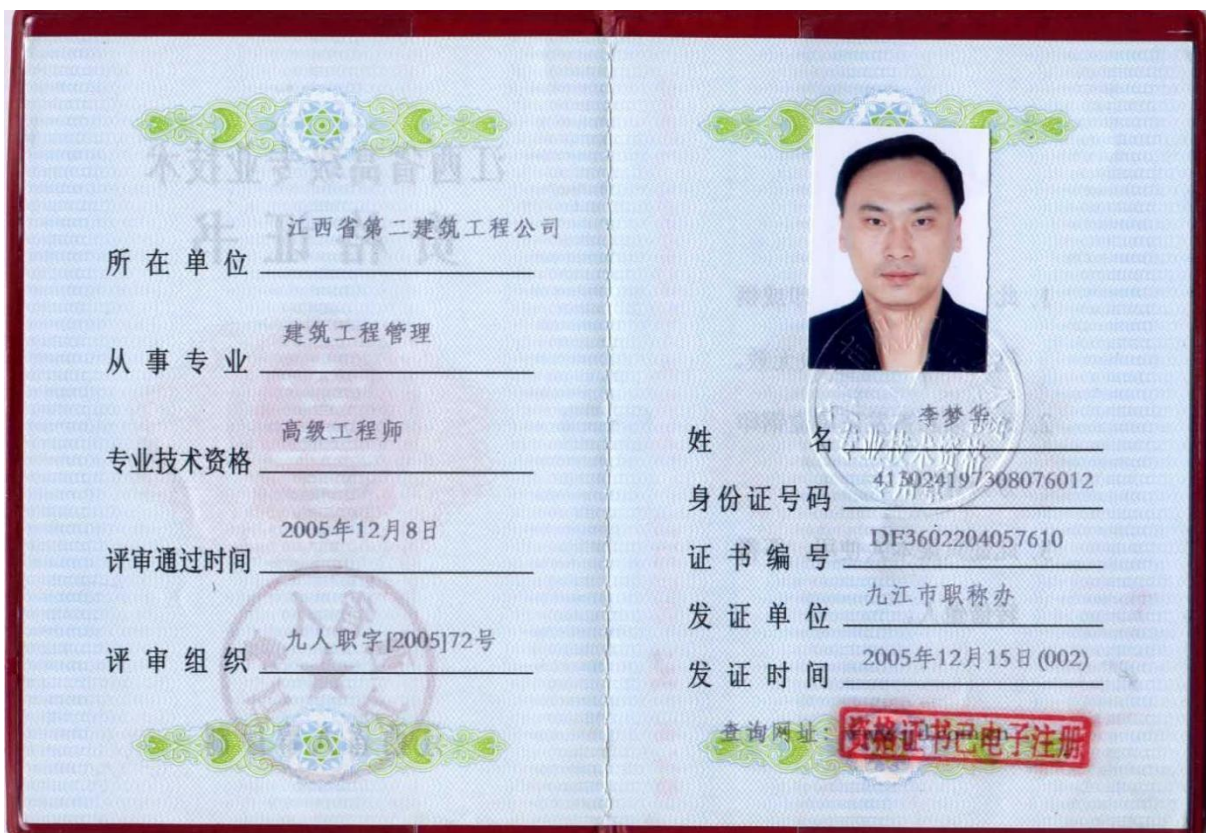 所在单位 江西省第二建筑工程公司
从事专业 建筑工程管理
专业技术资格 高级工程师
评审通过时间 2005年12月8日
评审组织 九人职字[2005]72号
姓名 李梦华
专业技术资格
身份证号码 413024197308076012
证书编号 DF3602204057610
发证单位 九江市职称办
发证时间 2005年12月15日(002)
查询网址：
资格证书已电子注册